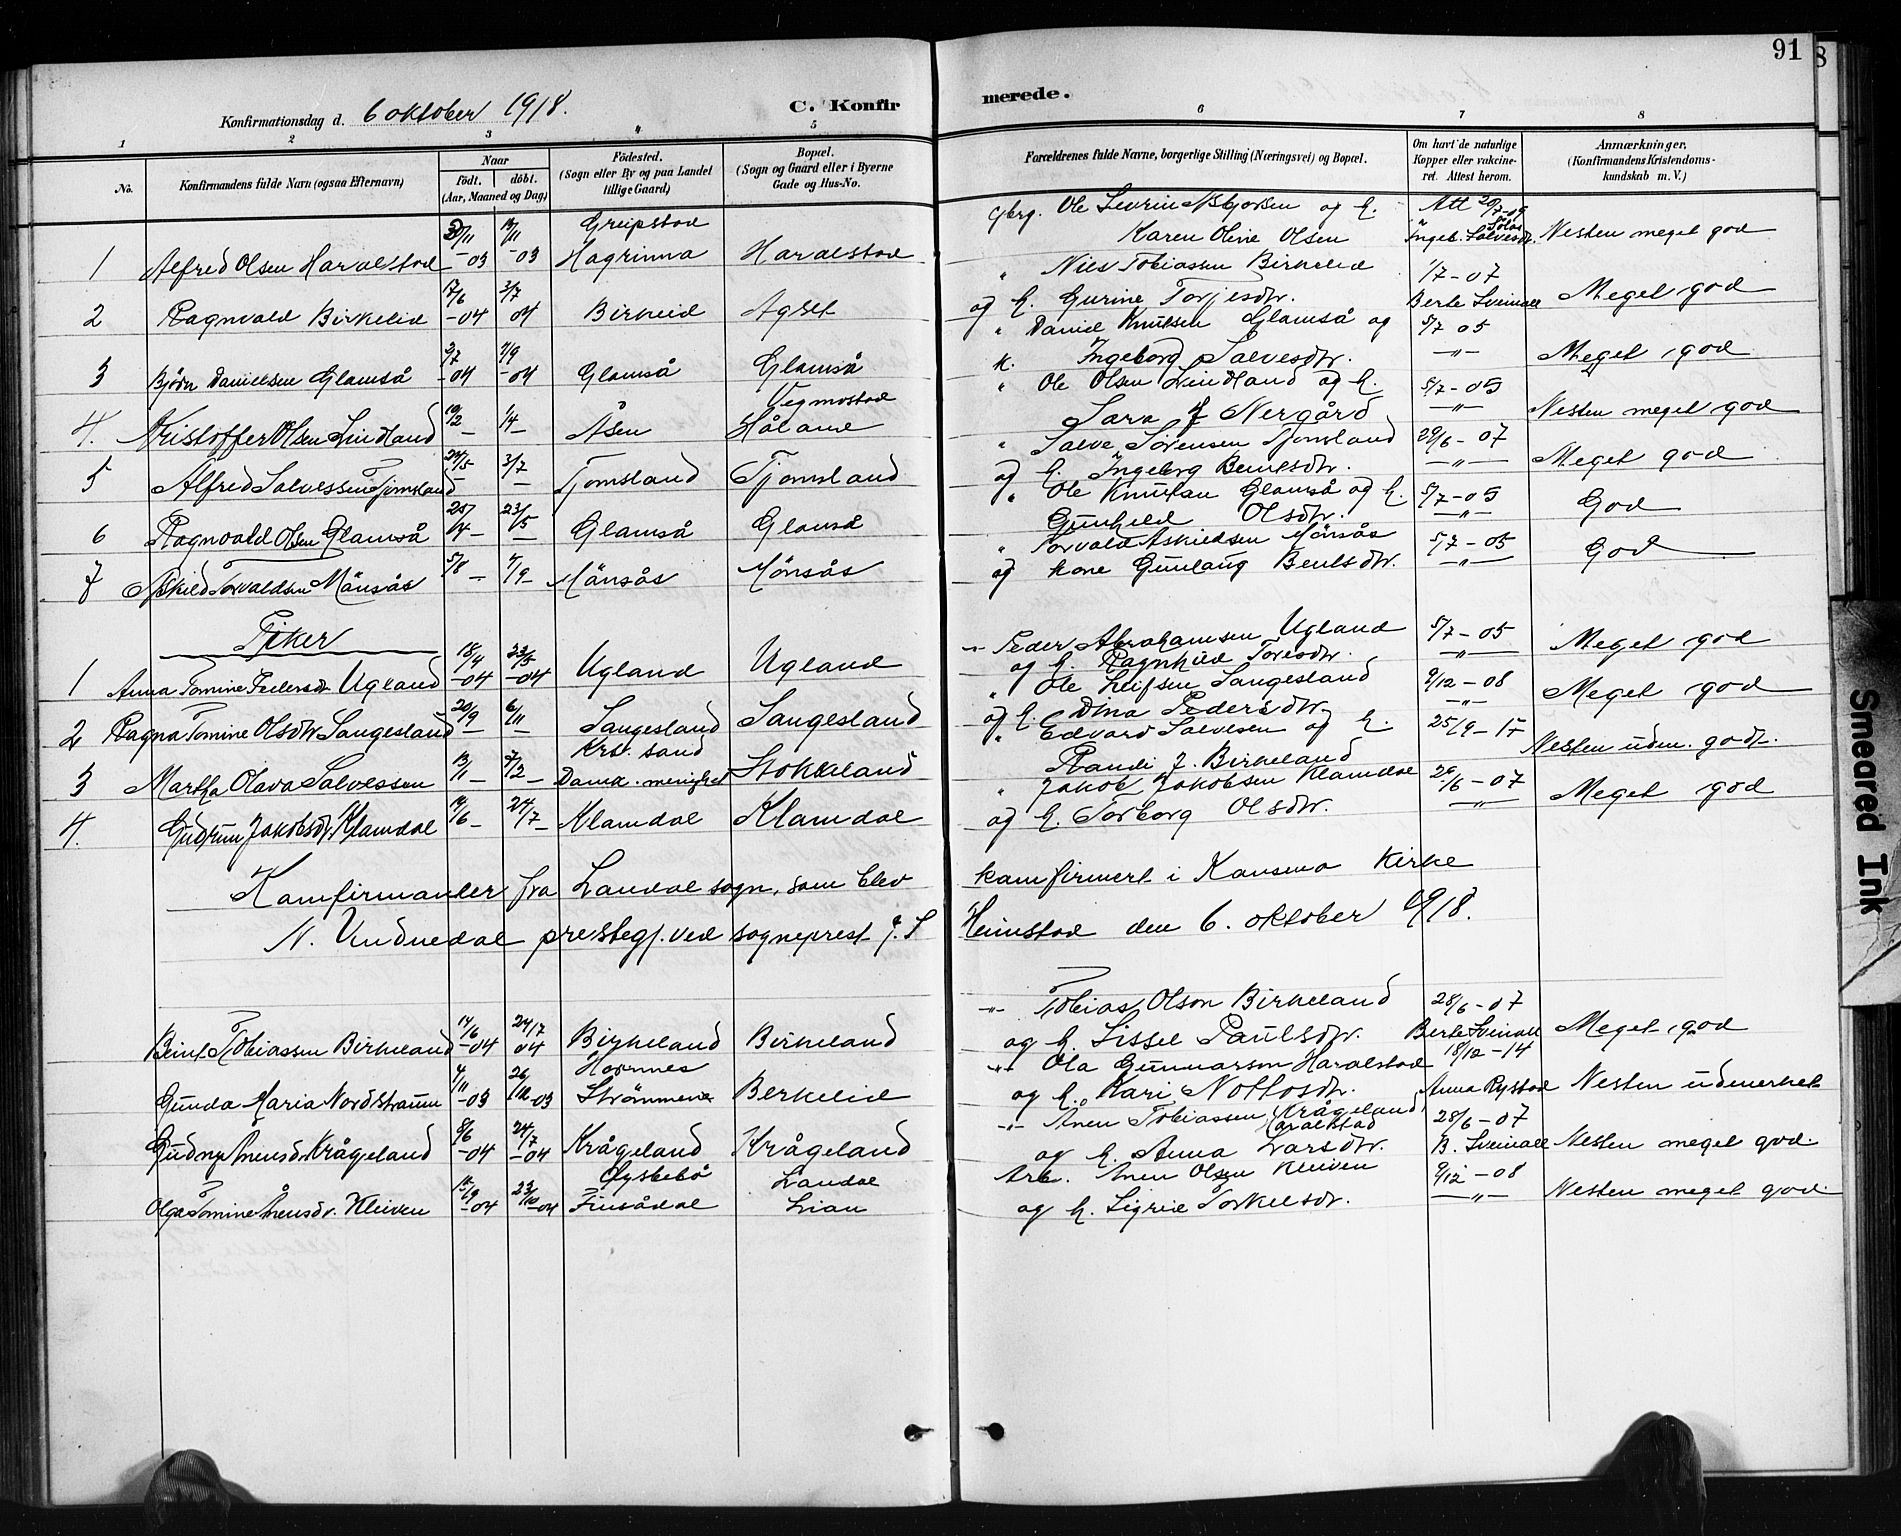 91
8
Konfirmationsdag d. 6 oktober 1918.
C. Konfirmerede.
1 2 3 4 5 6 7 8
No.
Konfirmandens fulde Navn (ogsaa Efternavn)
Naar
født. døbt.
(Aar, Maaned og Dag)
Fødested.
(Sogn eller By og paa Landet
tillige Gaard)
Bopæl.
(Sogn og Gaard eller i Byerne
Gade og Hus-No.
Forældrenes fulde Navne, borgerlige Stilling (Næringsvei) og Bopæl.
Om havt de naturlige
Kopper eller vaccine-
ret. Attest herom.
Anmærkninger,
(Konfirmandens Kristendoms-
kundskab m. V.)
1 Alfred Olsen Haralstad 11 -03 11 -03 Greipstad Hagrinna Haralstad gbrg. Ole Sevrin Asbjørsen og h. Karen Oline Olsen Att 7-09 Ingeb. Salvesdr. Nesten meget god
2 Ragnvald Birkelid 7/6 -04 3/7 04 Birkelid Agset " Niels Tobiassen Birkelid og h. Gurine Torjesdtr. 1/7-07 Berte Sveinall Meget god
3 Bjørn Danielsen Glamså 2/7 -04 7/9 -04 Glamså Glamså " Daniel Knutsen Glamså og k. Ingeborg Salvesdtr. 5/7 05 —"— Meget god
4. Kristoffer Olsen Lindland 19/2 — 1/4 — Åsen Vegmostad Hålame " Ole Olsen Lindland og h. Sara f. Nergård 5/7-05 —"— Nesten meget god
5 Alfred Salvessen Tjomsland 24/5 — 3/7 — Tjomsland Tjomsland " Salve Sørensen Tjomsland og h. Ingeborg Bentsdtr. 29/6-07 —"— Meget god
6 Ragnvald Olsen Glamså 25/4 — 23/5 — Glamså Glamså " Ole Knutsen Glamså og h. Gunhild Olsdtr. 5/7-05 —"— God
7 Askild Torvaldsen Mönsås 5/8 — 4/9 — Mönsås Mönsås " Torvald Askildsen Mönsås og kone Gunlaug Bentsdtr. 5/7-05 —"— God
Piker
1 Anna Tomine Pedersdr. Ugland 18/4 -04 23/5 -04 Ugland Ugland -"- Peder Abrahamsen Ugland og h. Ragnhild Toresdtr. 5/7-05 —"— Meget god
2 Ragna Tomine Olsdtr Sangesland 20/9 — 6/11 — Sangesland Sangesland " Ole Leifsen Sangesland og h. Dina Pedersdtr 9/12-08 —"— Meget god
3 Martha Olava Salvessen 13/11 — 7/2 — Krst. sand Domk. menighet Stokkeland " Edvard Salvesen og h. Randi f. Birkeland 25/9-15 Nesten uden. godt.
4. Gudrun Jakobsdr. Klamdal 19/6 — 24/7 — Klamdal Klamdal " Jakob Jakobsen Klamdal og h. Torborg Olsdtr. 29/6-07 —"— Meget god
Kamfirmanter fra Laudal sogn, som blev kamfirmert i Kansmo Kirke
N. Undnedal prestegj. ved sogneprest J. S Heimstad den 6. oktober 1918.
Beint Tobiassen Birkeland 14/6 -04 24/7 04 Birkeland Birkeland -"- Tobias Olson Birkeland og h. Sissel Paulsdtr. 28/6-07 Berte Sveinall Meget god
Gunda Maria Nordstraum 4/11 -03 26/12 -03 Hornnes Strømmene Berkelid -"- Ola Gunnarson Haralstad og h. Kari Nottosdtr. 18/12-14 Anna Rystad Nesten udmerket
Gudny Anensdr. Krågeland 8/6 -04 24/7 -04 Krågeland Krågeland -"- Anen Tobiassen Krågeland Haralstad og h. Anna Larsdtr. 28/6-07 B. Sveinall Nesten meget god.
Olga Tomine Anensdr. Kleiven 15/9 -04 23/10 -04 Øyslebö Finsådal Laudal Lian Arb. Anen Olsen Kleiven og h. Sigrid Torkelsdtr. 9/12-08 —"— Nesten meget god.
Smeared Ink